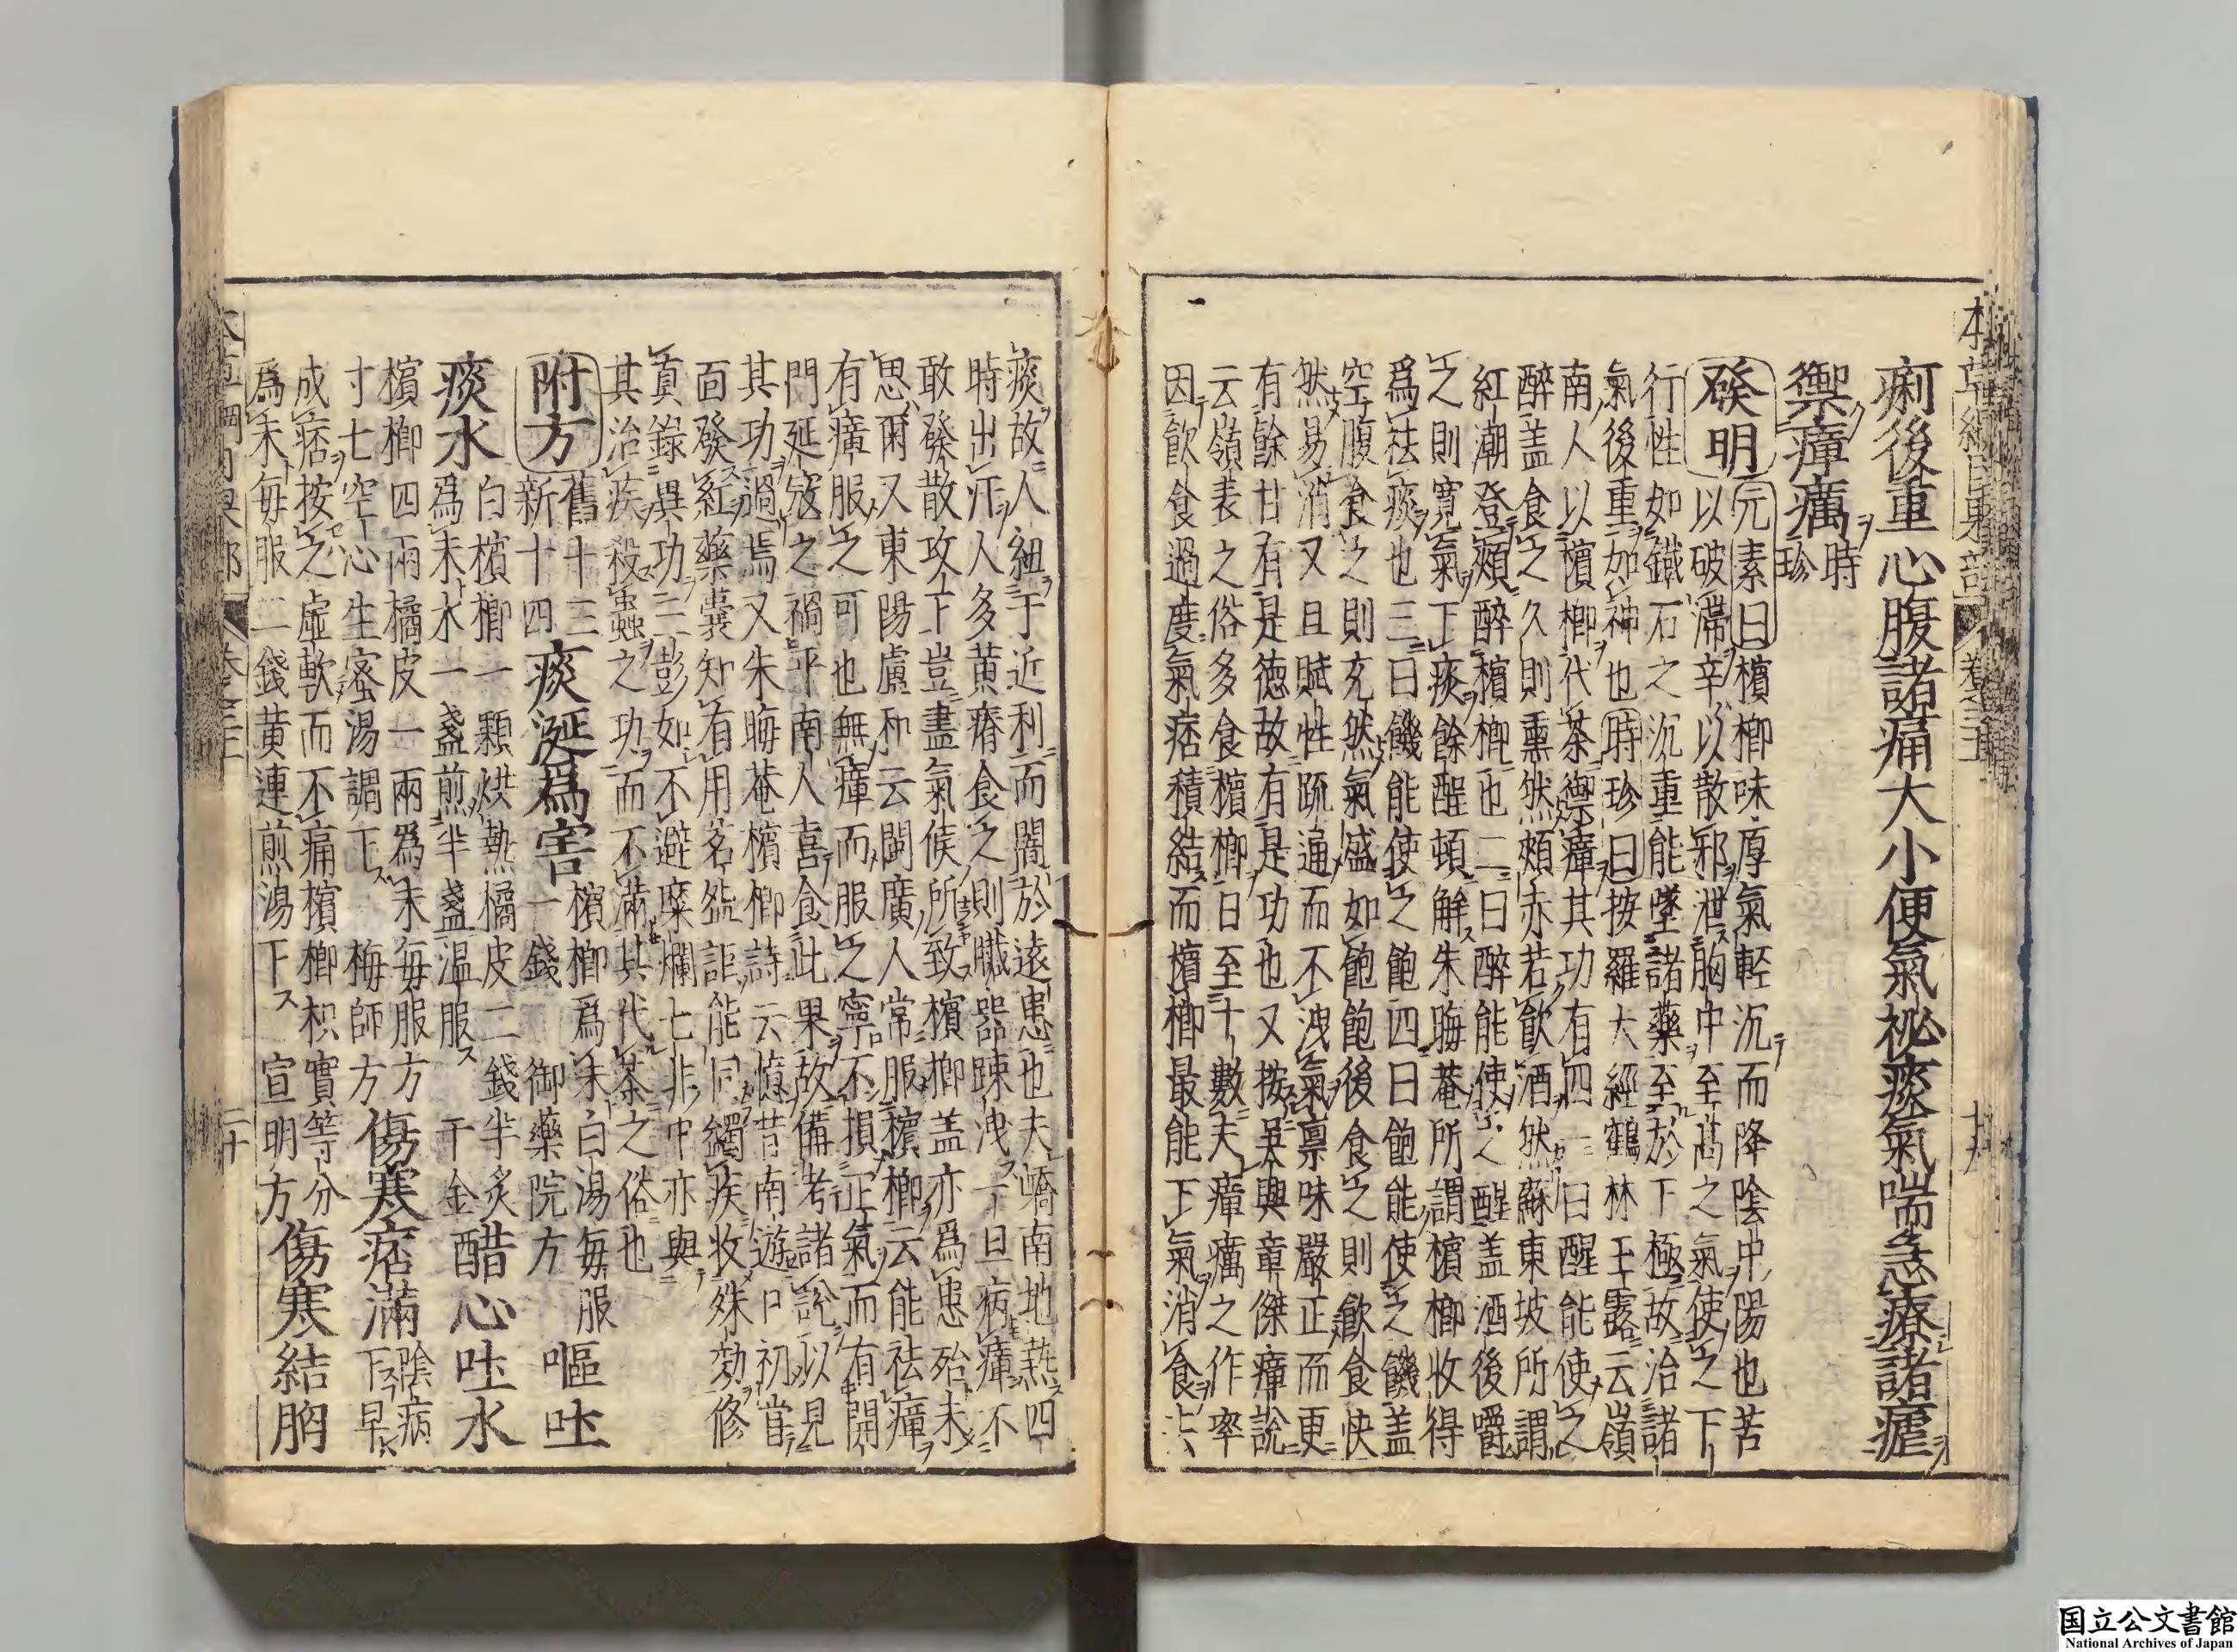 本草綱目果部 卷之三十一 十九
痢後重心腹諸痛大小便氣秘痰氣喘急療諸瘧
禦瘴癘時珍
發明 元素曰檳榔味厚氣輕沉而降陰中陽也苦
以破滯辛以散邪泄胸中至高之氣使之下
行性如鐵石之沉重能墜諸藥至於下極故治諸
氣後重如神也時珍曰按羅大經鶴林玉露云嶺
南人以檳榔代茶禦瘴其功有四一曰醒能使之
醉盖食之久則熏然頰赤若飲酒然蘇東坡所謂
紅潮登頰醉檳榔也二曰醉能使之醒盖酒後嚼
之則寬氣下痰餘酲頓解朱晦菴所謂檳榔收得
爲祛痰也三曰饑能使之飽四曰飽能使之饑盖
空腹食之則充然氣盛如飽飽後食之則飲食快
然易消又且賦性疏通而不洩氣禀味嚴正而更
有餘甘有是德故有是功也又按吴興章傑瘴說
云嶺表之俗多食檳榔日至十數夫瘴癘之作率
因飲食過度氣痞積結而檳榔最能下氣消食去
痰故人紐于近利而闇於遠患也夫嶠南地熱四
時出汗人多黄瘠食之則臟器踈洩一旦病瘴不
敢發散攻下豈盡氣候所致檳榔盖亦爲患殆未
思爾又東陽盧和云閩廣人常服檳榔云能祛瘴
有瘴服之可也無瘴而服之寧不損正氣而有開
門延寇之禍乎南人喜食此果故備考諸說以見
其功過焉又朱晦菴檳榔詩云憶昔南遊日初嘗
面發紅藥囊知有用茗盌詎能同蠲疾收殊効修
真錄異功三彭如不避糜爛七非中亦與
其治疾殺蟲之功而不滿其代茶之俗也
附方 舊十三新十四 痰涎爲害 檳榔爲末白湯每服一錢 御藥院方 嘔吐
痰水 白檳榔一顆烘熱橘皮二錢半炙爲末水一盞煎半盞温服 千金 醋心吐水
檳榔四兩橘皮一兩爲末每服方
寸七空心生蜜湯調下 梅師方 傷寒痞滿 陰病下早
成痞按之虛軟而不痛檳榔枳實等分
爲末每服二錢黄連煎湯下 宣明方 傷寒結胸
本草綱目果部 卷之三十一 二十
国立公文書館
National Archives of Japan